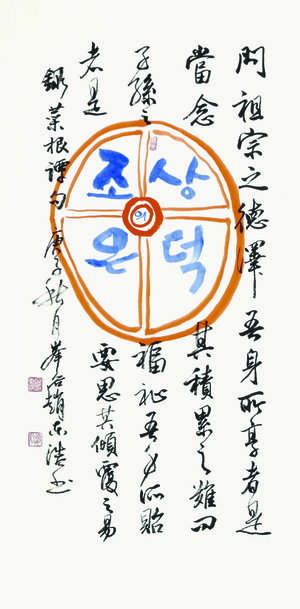 問祖宗之德澤吾身所享者是
當念其積累之難問
子孫之福祉吾身所貽
者是要思其傾覆之易
錄菜根譚句 庚子秋月 趙東浩
조상
의
은덕